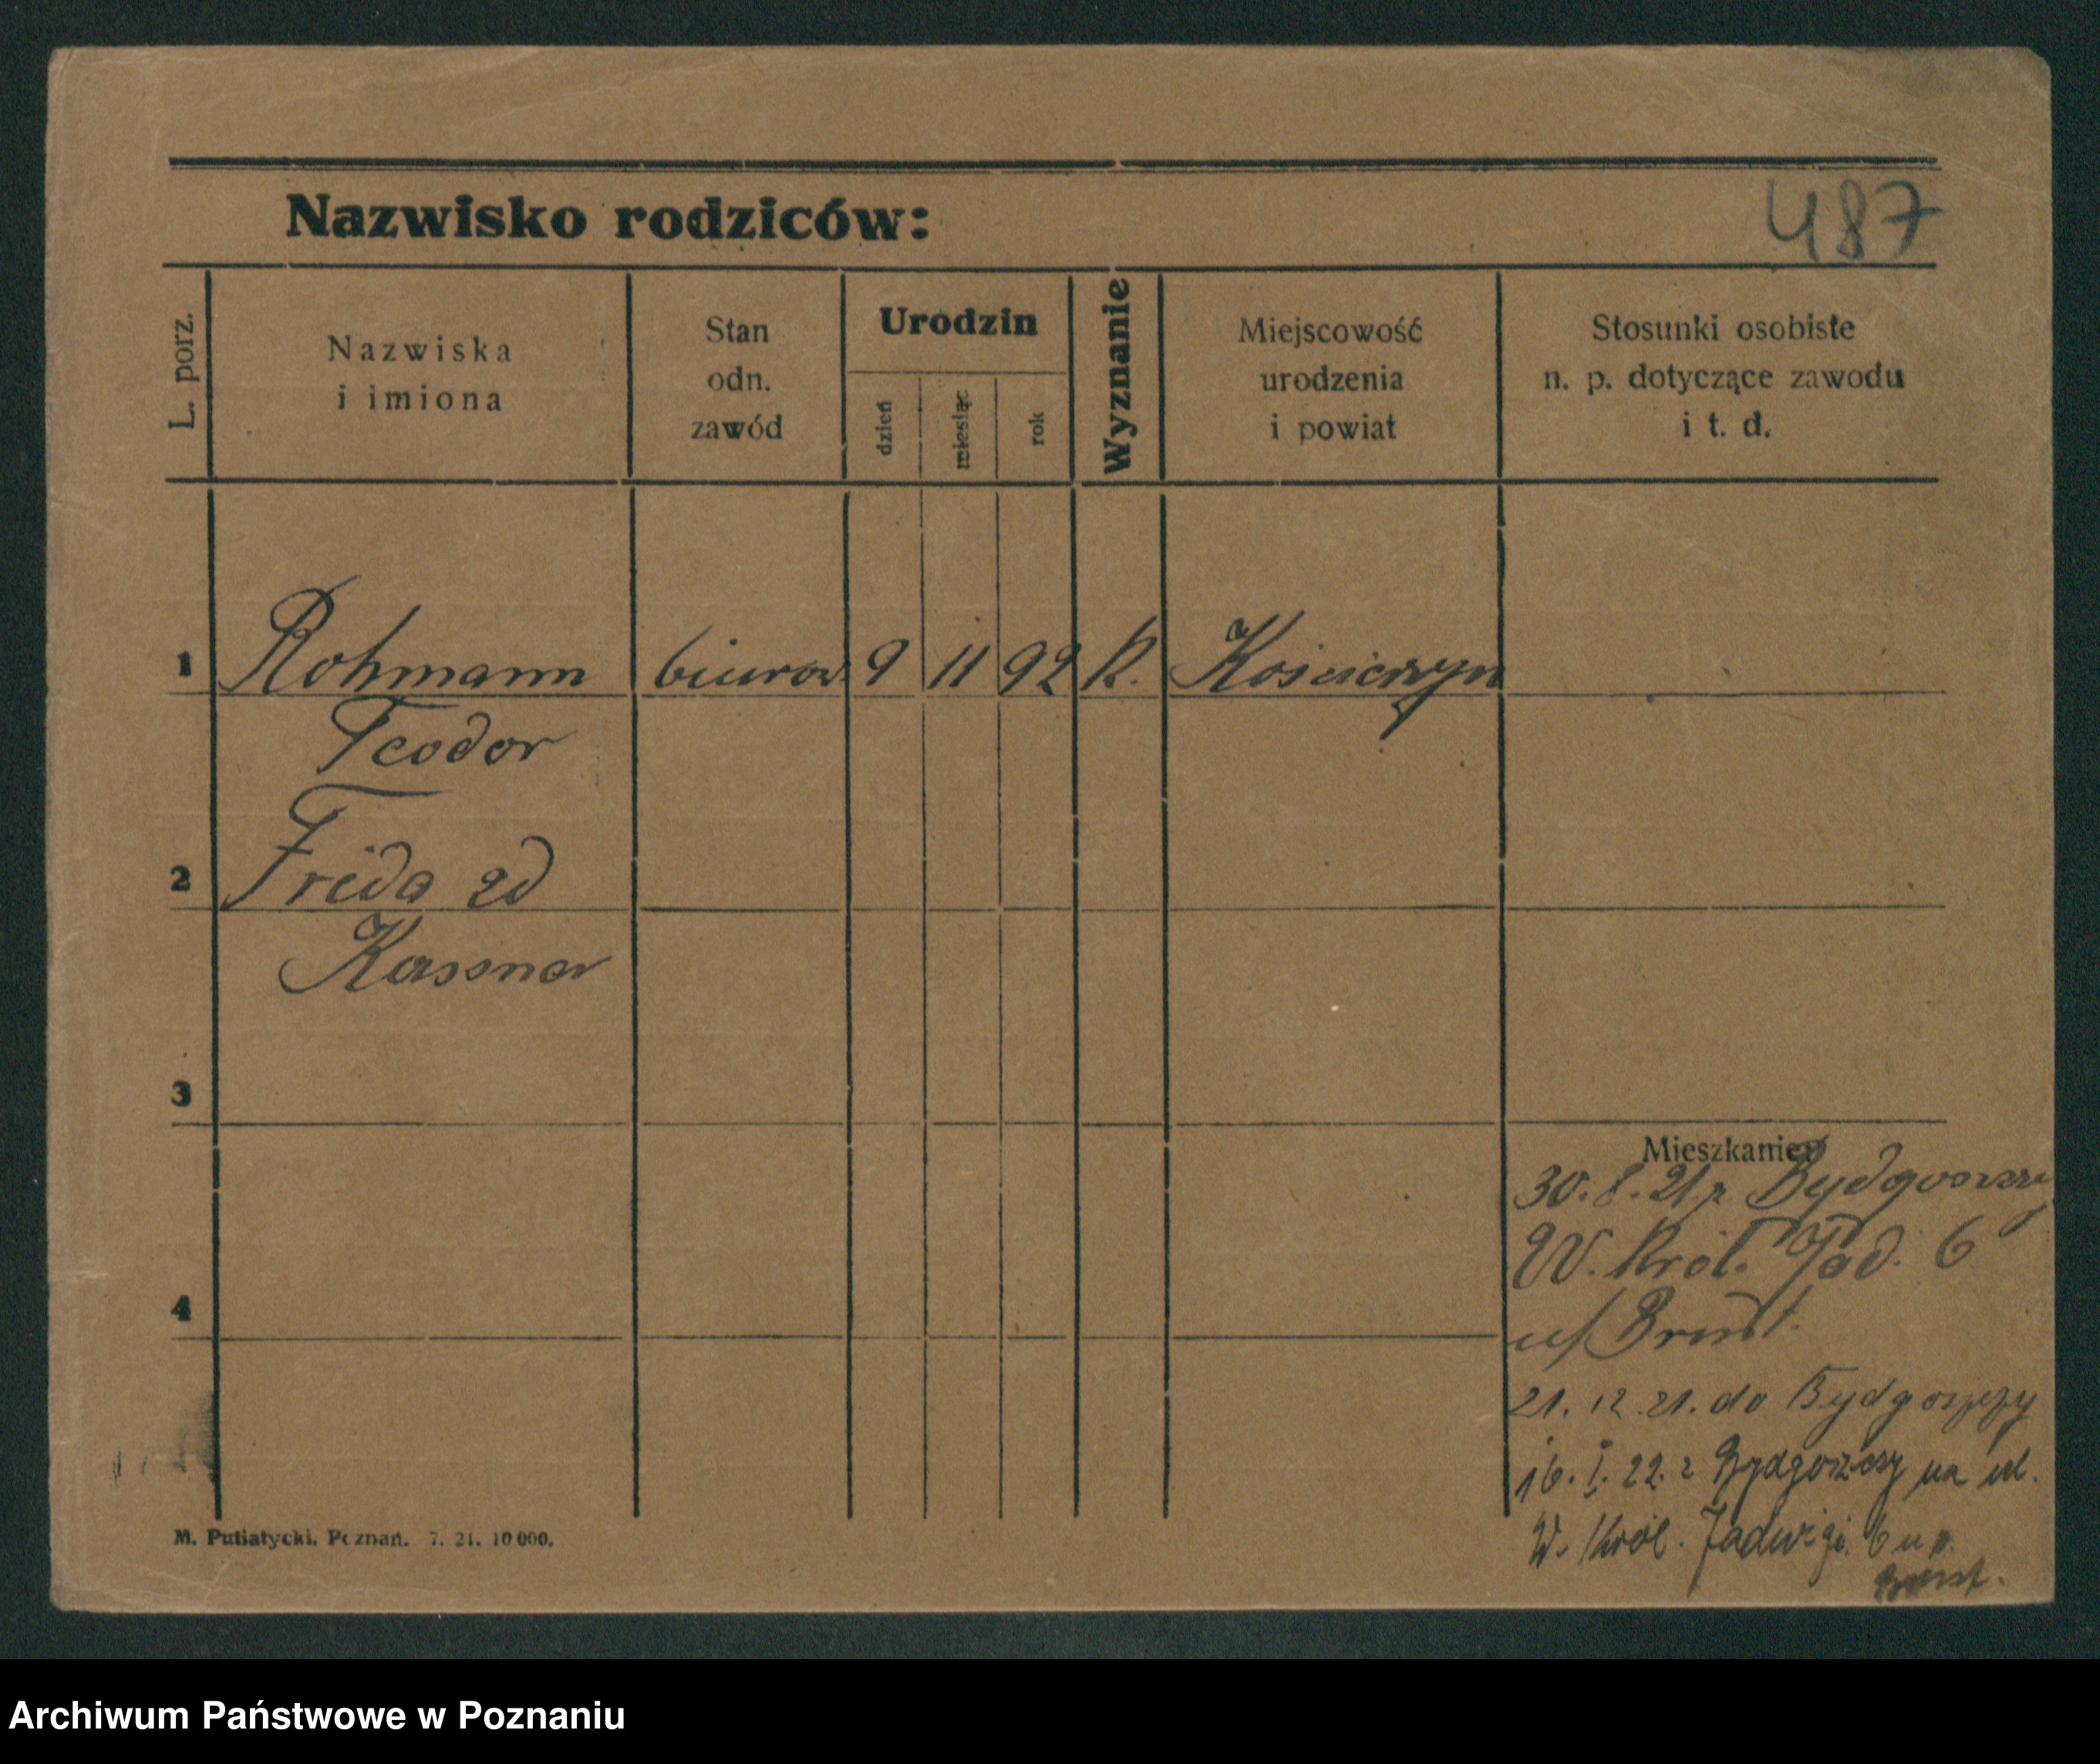 487
Nazwisko rodziców:
L. porz.
Nazwiska
i imiona
Stan
odn.
zawód
Urodzin
dzień
miesiąc
rok
Wyznanie
Miejscowość
urodzenia
i powiat
Stosunki osobiste
n. p. dotyczące zawodu
i t. d.
1 Rohmann biurow. 9 11 92 K.
Teodor
2 Frida
Kassner
3
Mieszkanie:
30. 8. 21 z Bydgoszczy
W. Król. Jad. 6
4
u/
21. 12. 21. do Bydgoszczy
16. I. 22. z Bydgoszczy na ul.
W. Król. Jadwigi. 6 u p.
M. Putiatycki. Poznań. 7. 21. 10 000.
Archiwum Państwowe w Poznaniu